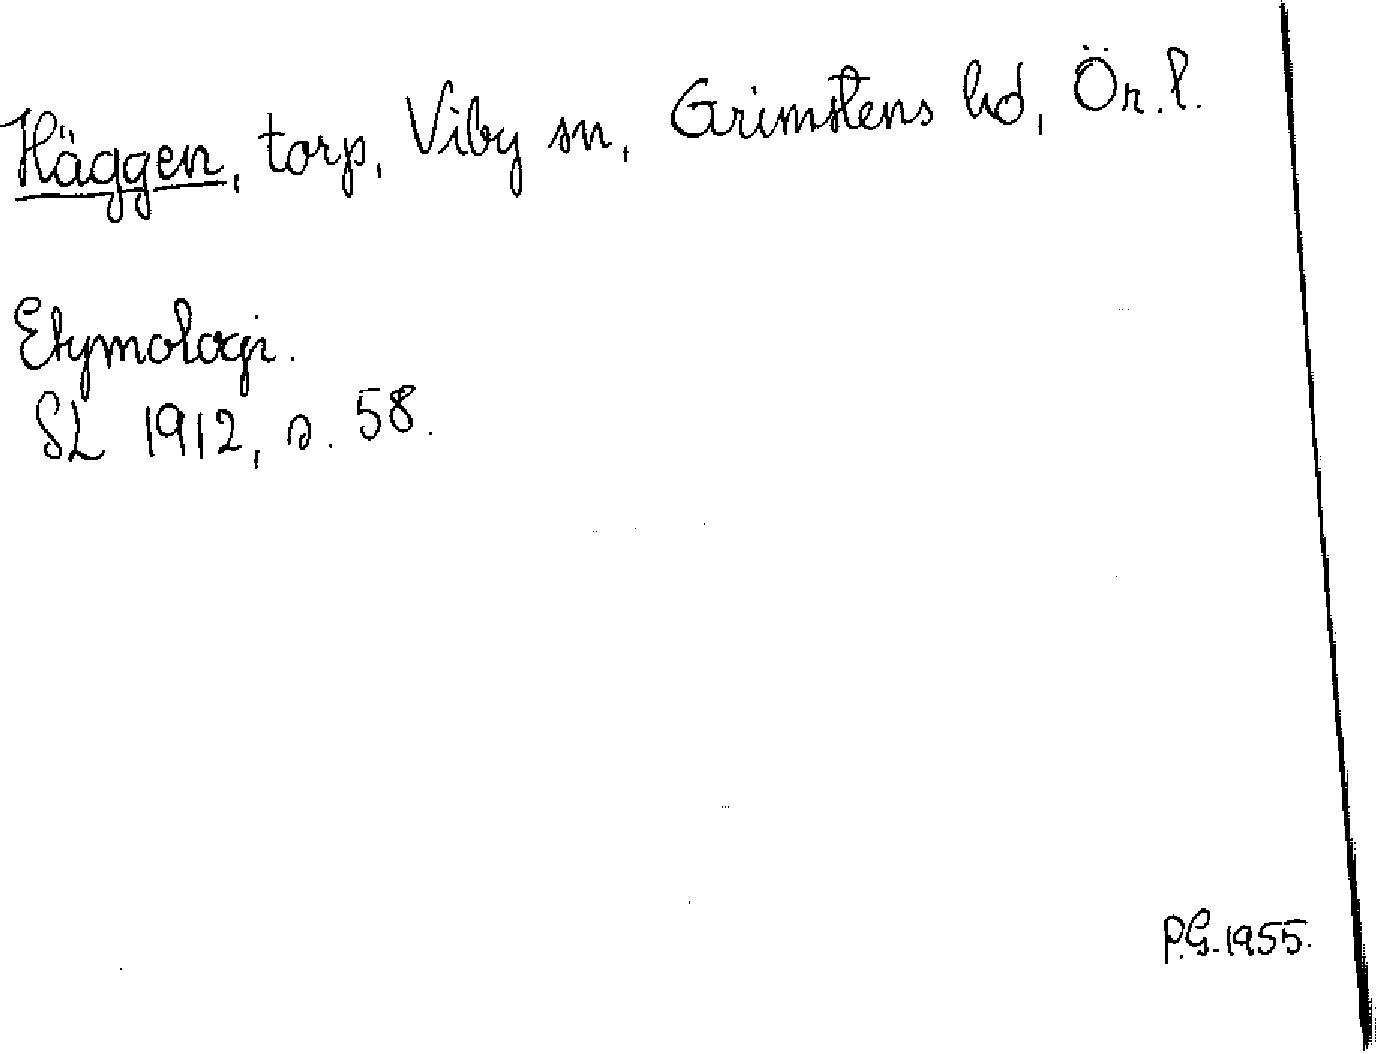 Häggen, torp, Viby sn, Grimstens hd, Ör. l.
Etymologi.
SL 1912, s. 58.
P.G. 1955.